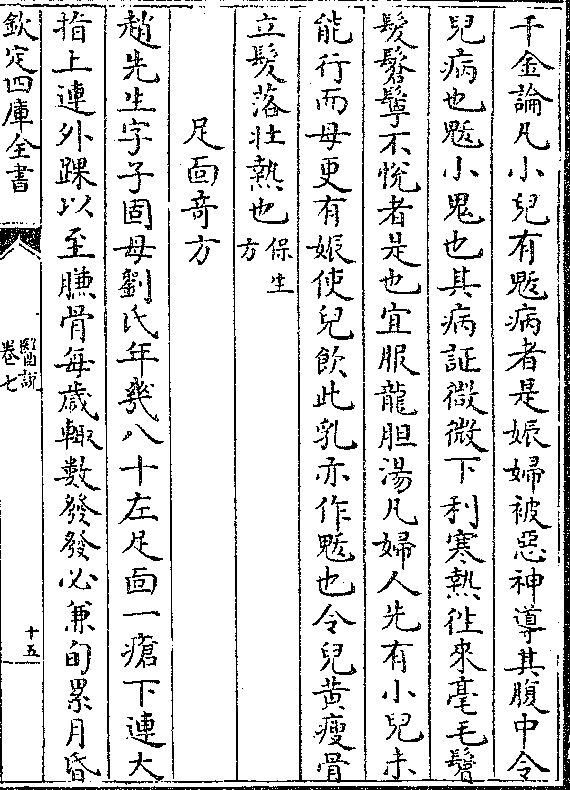 千金論凡小兒有魃病者是娠婦被惡神導其腹中令
兒病也魃小鬼也其病証㣲㣲下利寒熱徃來毫毛鬢
髮鬇鬡不悅者是也宜服龍胆湯凡婦人先有小兒未
能行而母更有娠使兒飲此乳亦作魃也令兒黄瘦骨
立髮落壮熱也保生方
足面竒方
趙先生字子固母劉氏年幾八十左足面一瘡下連大
指上連外踝以至臁骨每歲輙數發發必兼旬累月昏
欽定四庫全書
醫說
卷七
十五